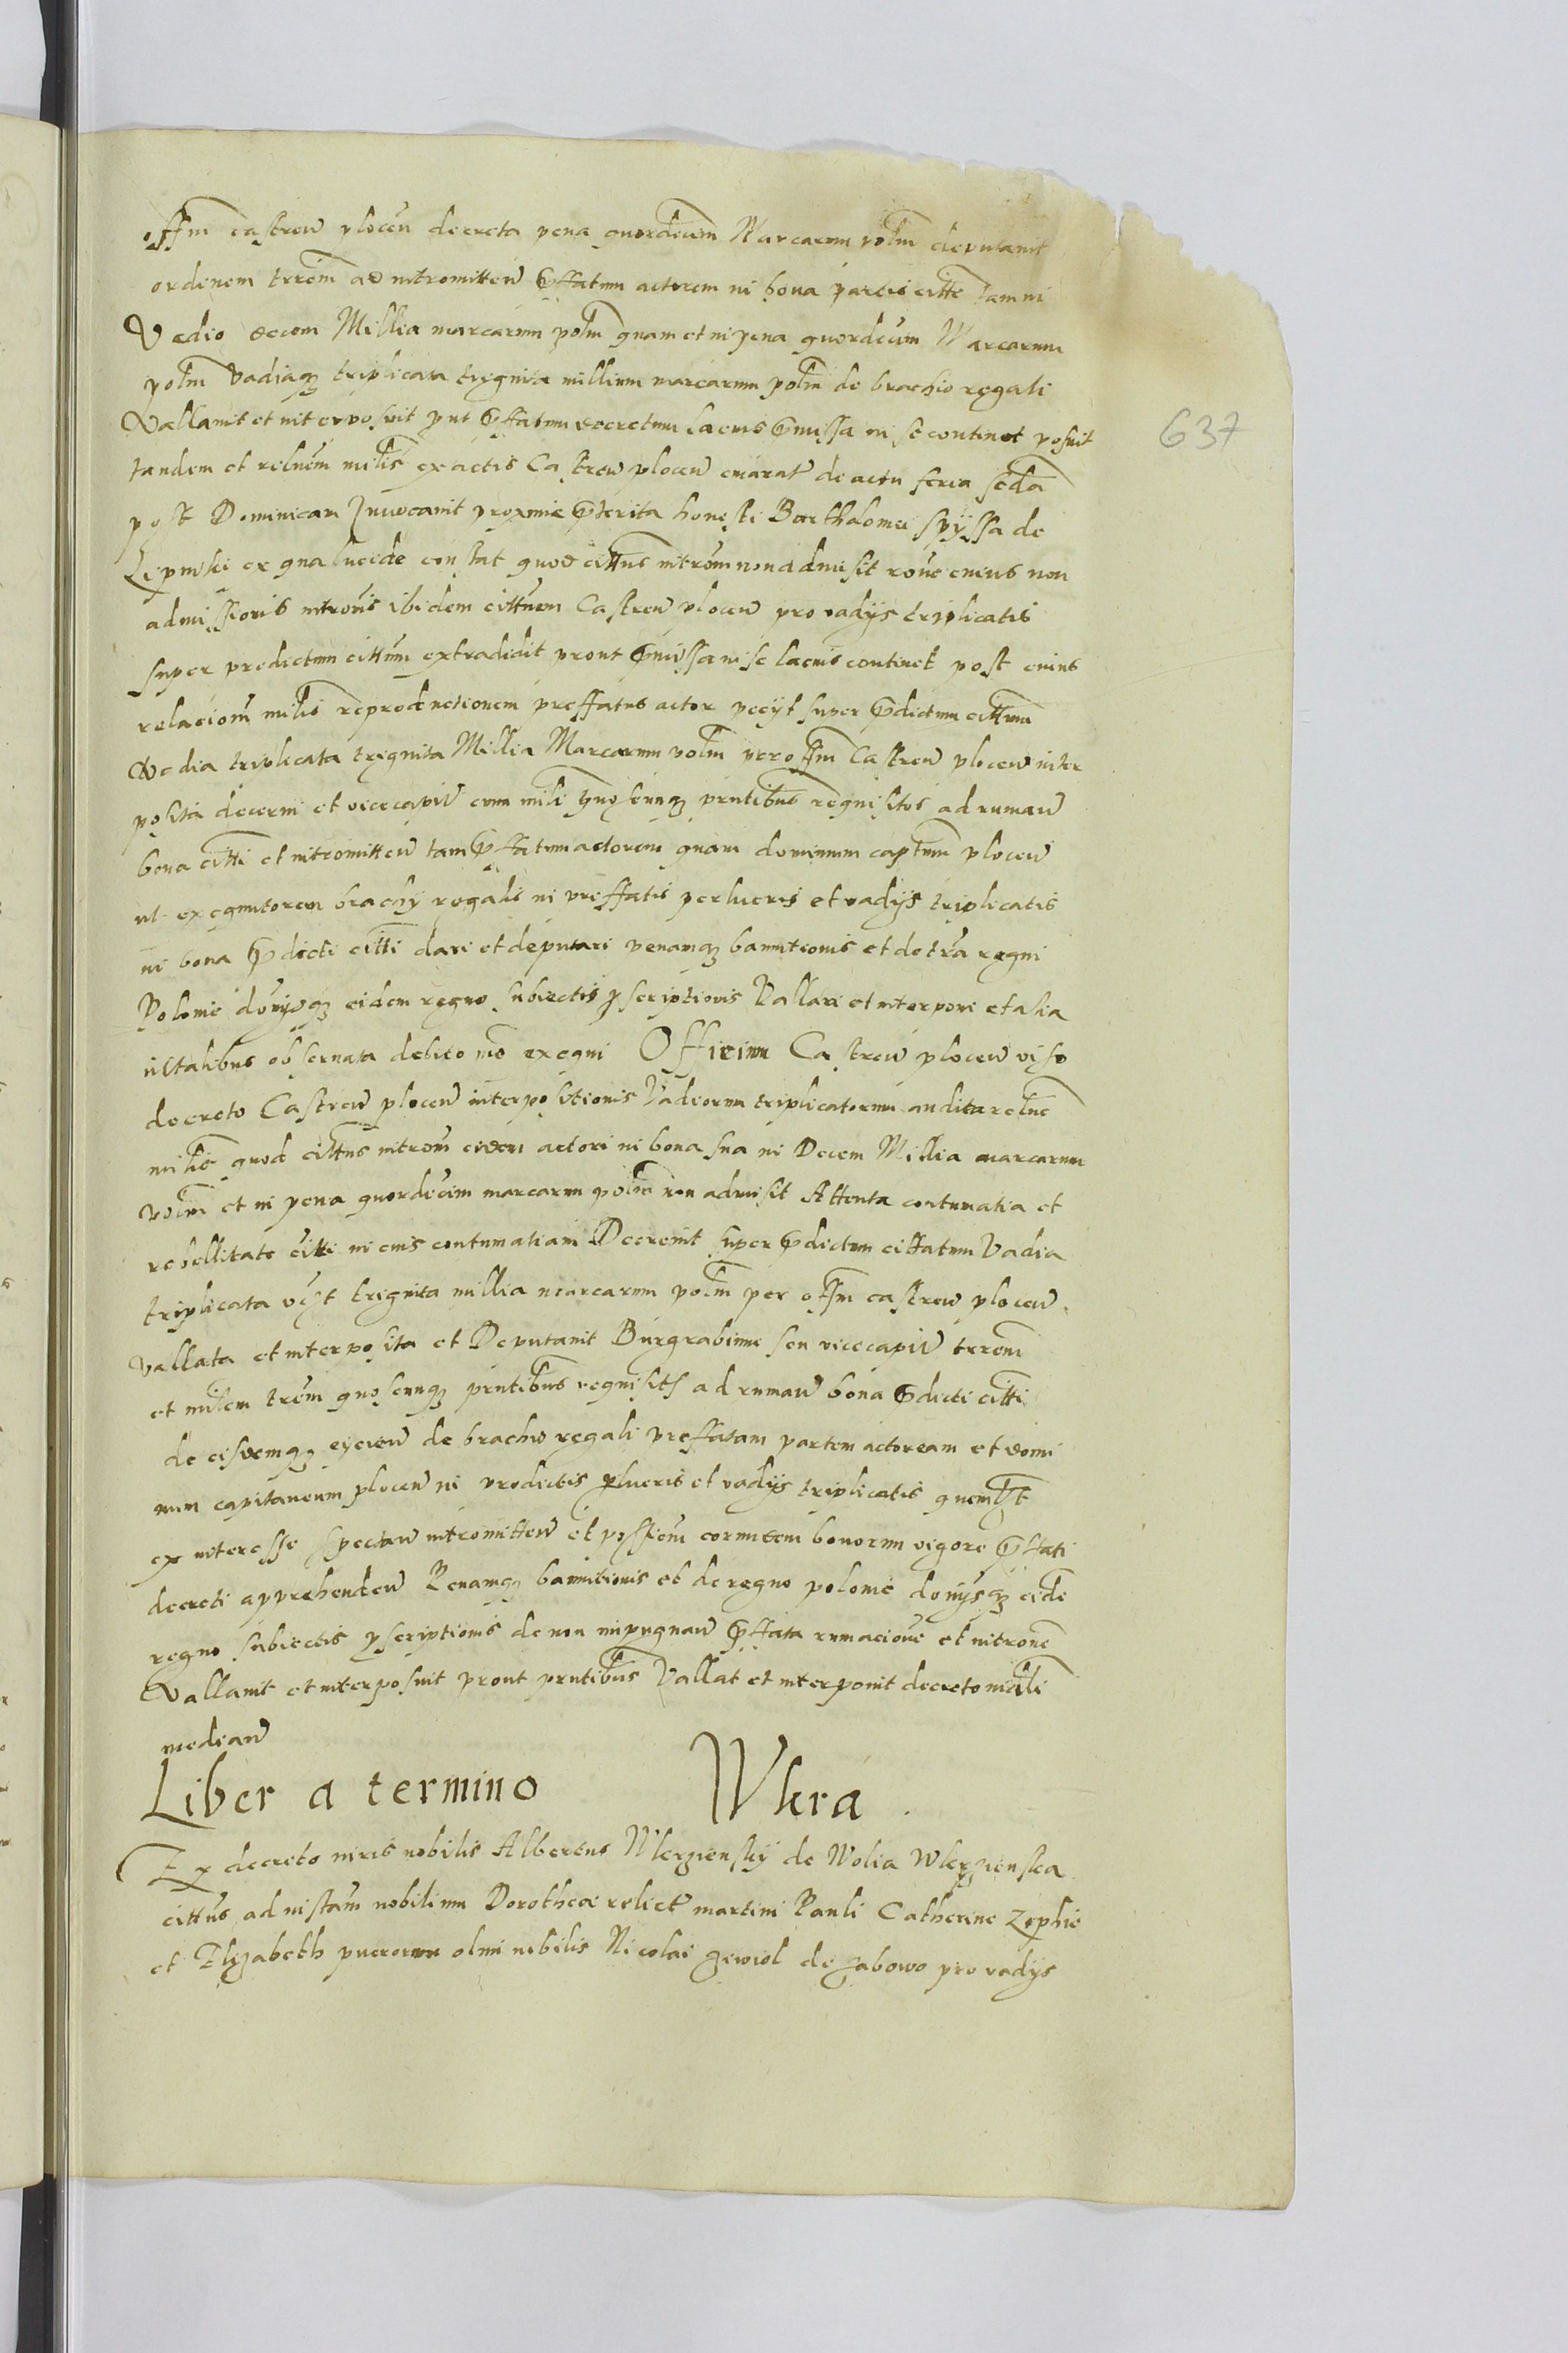 offm castren plocen decreta pena quordecem Marcarum polm deputauit
ordenem terrem ad intromitten prffatum actorem in bona partis citte tam in
Vadio decem Millia marcarum polm quam et in pena quordecim Marcarum
polm vadiaq triplicata trzginta millium marcarum polm de brachio regali
Vallauit et interposuit put prffatum decretum lacius pmissa in se continet posuit
tandem et relnem milis ex actis Castren plocen emarat de actu feria secda
post Dominicam Inuocauit proxime pterita honesti Bartholomei spyssa de
Lipinski ex qua lucide constat quod cittus introm non admisit rone cuius non
admissionis intronis ibidem cittuem Castren plocen pro vadys triplicatis
super predictum cittum extradidit prout pmissa in se lacius continet post cuius
relaciom milis reproductionem preffatus actor pecyt super pdictum cittum
Vadia triplicata trzginta Millia Marcarum polm per offm Castren plocen inter
posita decerni et vicecapit cum mili quoscunq pntibus requisitos ad ruman
bona citti et intromitten tam pffatum actorem quam dominum captum plocen
ut exequutorem brachy regalis in preffatis perlucris et vadys triplicatis
in bona pdicti citti dari et deputari penamq bannitionis et de tra regni
Polonie donysq eidem regno subiectis pscriptionis Vallari et interponi et alia
in talibus obseruata debito mo exequi Officium Castren plocen viso
decreto Castren plocen interpositionis Vadiorum triplicatorum audita relne
milis quod cittus introm eidem actori in bona sua in Decem Millia marcarum
polm et in pena quordecim marcarum polm non admisit Attenta contumatia et
rebellitate citti in eius contumatiam Decreuit super pdictum cittatum Vadia
triplicata vczt trzginta millia marcarum polm per offm castren plocen
vallata et interposita et Deputauit Burgrabium seu vicecapit terrem
et milem trem quoscunq pntibus requisits ad ruman bona pdicti citti
de eisdemq eycien de brachio regali preffatam partem actoream et domi
num capitaneum plocen in predictis plucris et vadys triplicatis quemlzt
ex interesse spectan intromitten et possiem eorundem bonorum vigore pffati
decreti apprehenden Penamq bannitionis et de regno polonie donysq eide
regno subiectis pscriptionis de non impugnan pffata rumacione et introne
Vallauit et interposuit prout pntibus Vallat et interponit decreto mdli
median
Liber a termino Wkra
Ex decreto iuris nobilis Albertus Wkrzienskÿ de Wolia Wkrzienska
cittus ad instam nobilium Dorothea relict martini Pauli Catherine Zophie
et Elizabeth puerorum olim nobilis Nicolai gewiol de zabowo pro vadys
637